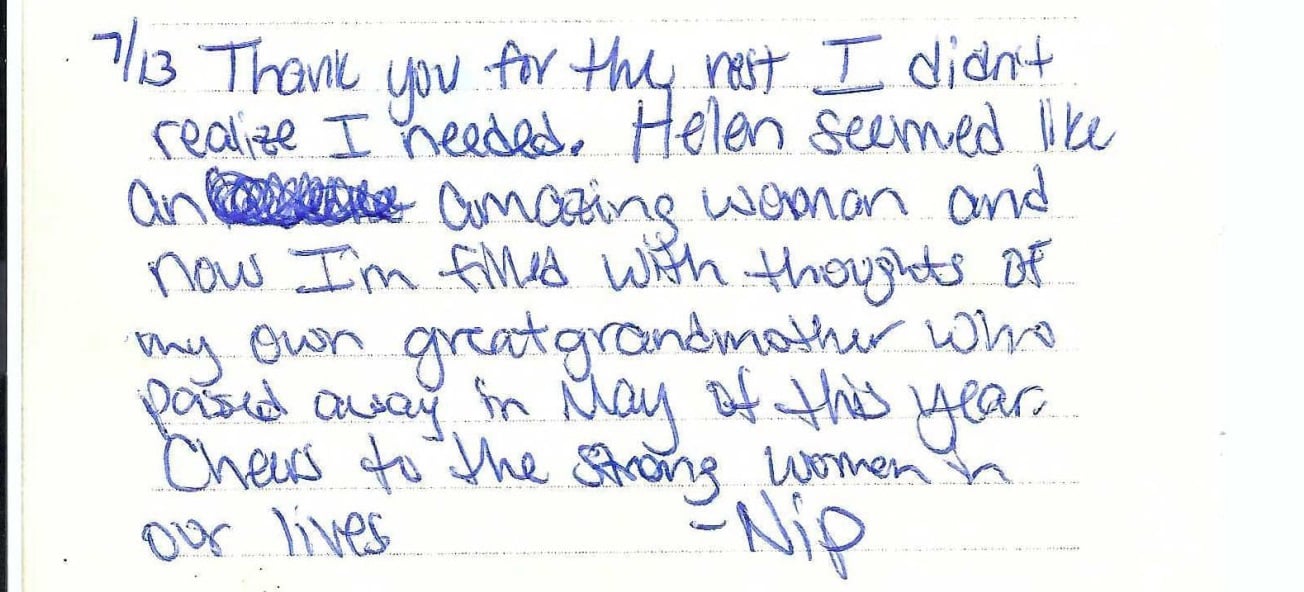 7/13 Thank you for the rest I didn't
realize I needed. Helen seemed like
an amazing woman and
now I'm filled with thoughts of
my own greatgrandmother who
passed away in May of this year.
Cheers to the strong women in
our lives -Nip